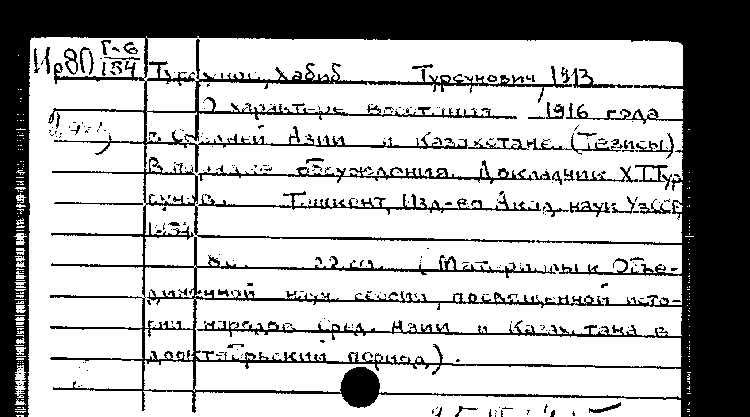 Ир80 Г-6/154
Турсунов, Хабиб Турсунович, 1913
О характере восстания 1916 года
в Средней Азии и Казахстане. (Тезисы)
В порядке обсуждения. Докладчик Х.Т.Тур
сунов. Ташкент, Изд-во Акад. наук УзССР
1954.
8 с. 22 см. (Материалы к Объе-
диненной науч. сессии, посвященной исто-
рии народов Сред. Азии и Казахстана в
дооктябрьский период).